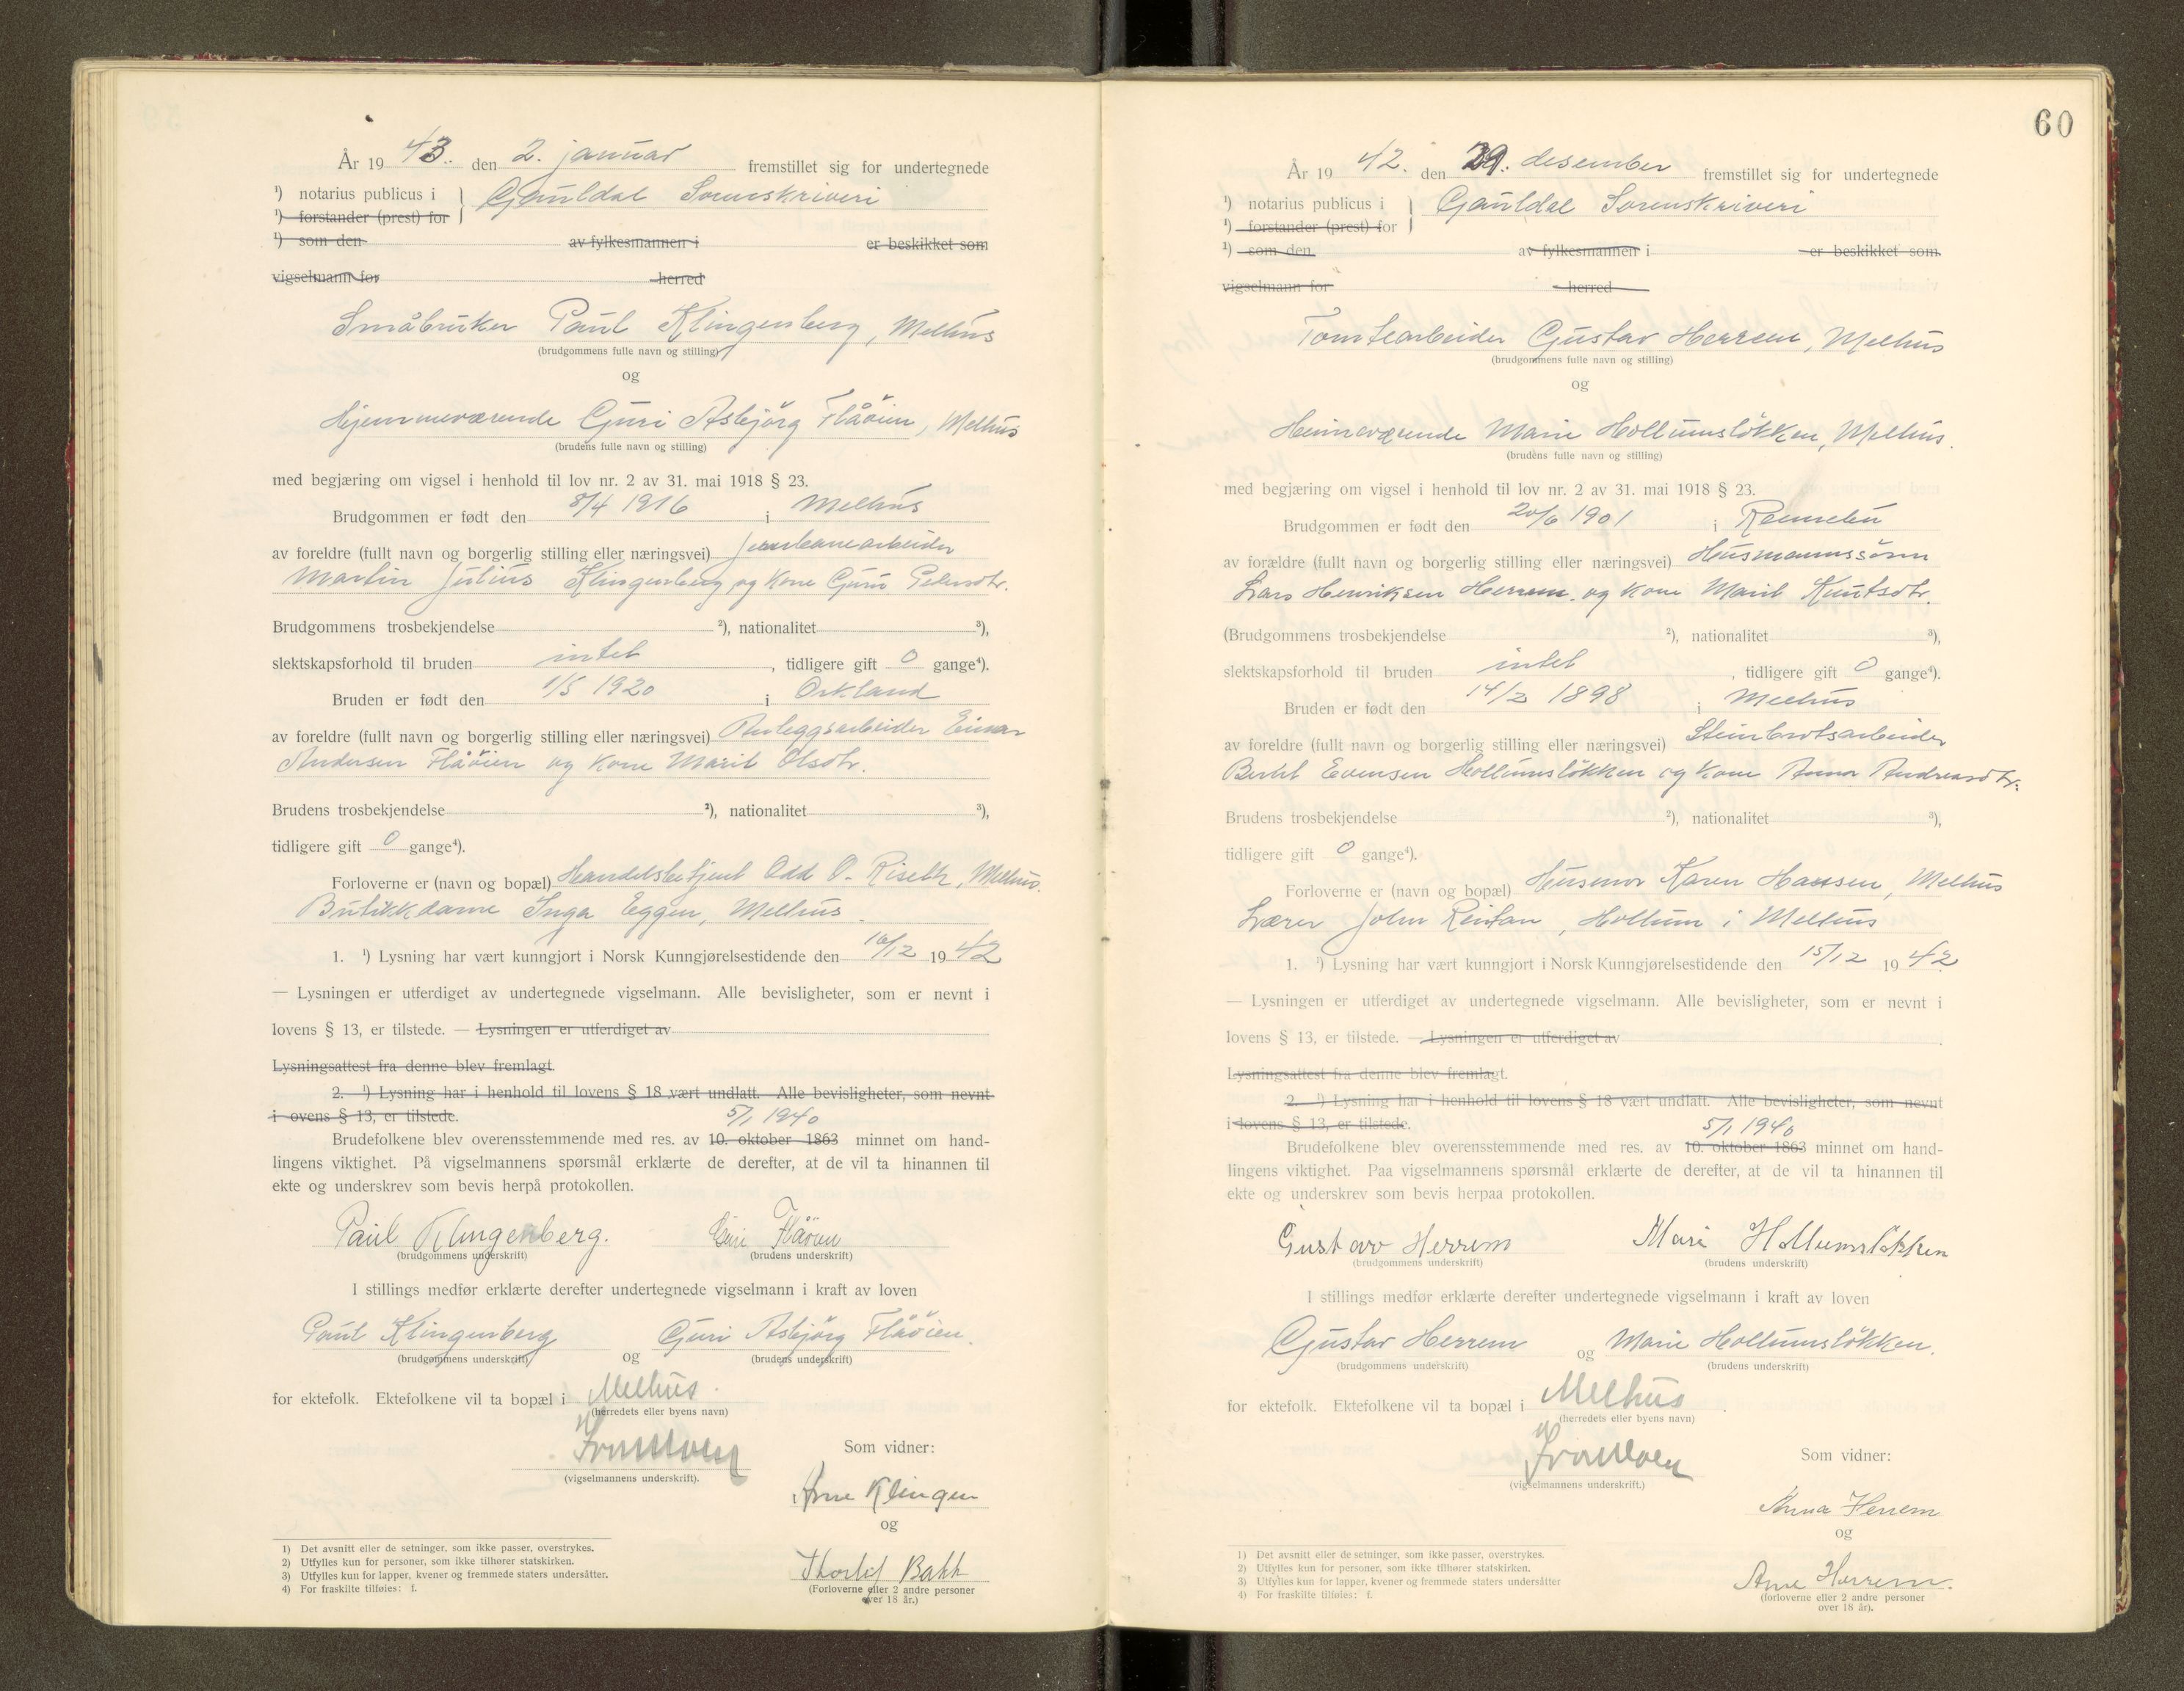 År 19 43. den 2. januar fremstillet sig for undertegnede
¹) notarius publicus i } Gauldal Sorenskriveri
¹) forstander (prest) for
¹) som den av fylkesmannen i er beskikket som
vigselmann for herred
Småbruker Paul Klingenberg, Melhus
(brudgommens fulle navn og stilling)
og
Hjemmeværende Guri Asbjörg Flåöien, Melhus
(brudens fulle navn og stilling)
med begjæring om vigsel i henhold til lov nr. 2 av 31. mai 1918 § 23.
Brudgommen er født den 8/4 1916 i Melhus
av foreldre (fullt navn og borgerlig stilling eller næringsvei) Jernbanearbeider
Martin Julius Klingenberg og kone Guru Pedersdtr.
Brudgommens trosbekjendelse ²), nationalitet ³),
slektskapsforhold til bruden intet , tidligere gift 0 gange⁴).
Bruden er født den 1/5 1920 i Orkland
av foreldre (fullt navn og borgerlig stilling eller næringsvei) Anleggsarbeider Einar
Andersen Flåöien og kone Marit Olsdtr.
Brudens trosbekjendelse ²), nationalitet ³),
tidligere gift 0 gange⁴).
Forloverne er (navn og bopæl) Handelsbetjent Odd O. Riseth, Melhus.
Butikkdame Inga Eggen, Melhus.
1. ¹) Lysning har vært kunngjort i Norsk Kunngjørelsestidende den 16/12 1942
— Lysningen er utferdiget av undertegnede vigselmann. Alle bevisligheter, som er nevnt i
lovens § 13, er tilstede. — Lysningen er utferdiget av
Lysningsattest fra denne blev fremlagt.
2. ¹) Lysning har i henhold til lovens § 18 vært undlatt. Alle bevisligheter, som nevnt
i ovens § 13, er tilstede. 5/1 1940
Brudefolkene blev overensstemmende med res. av 10. oktober 1863 minnet om hand-
lingens viktighet. På vigselmannens spørsmål erklærte de derefter, at de vil ta hinannen til
ekte og underskrev som bevis herpå protokollen.
Paul Klingenberg. Guri Flåöien
(brudgommens underskrift) (brudens underskrift)
I stillings medfør erklærte derefter undertegnede vigselmann i kraft av loven
Paul Klingenberg og Guri Asbjörg Flåöien.
(brudgommens underskrift) (brudens underskrift)
for ektefolk. Ektefolkene vil ta bopæl i Melhus.
(herredets eller byens navn)
(vigselmannens underskrift).
Som vidner:
Arne Klingen
og
Thorleif Bakk
(Forloverne eller 2 andre personer
over 18 år.)
1) Det avsnitt eller de setninger, som ikke passer, overstrykes.
2) Utfylles kun for personer, som ikke tilhører statskirken.
3) Utfylles kun for lapper, kvener og fremmede staters undersåtter.
4) For fraskilte tilføies: f.
60
År 19 42. den 29. desember fremstillet sig for undertegnede
¹) notarius publicus i } Gauldal Sorenskriveri
¹) forstander (prest) for
¹) som den av fylkesmannen i er beskikket som
vigselmann for herred
Tomtearbeider Gustav Herrem, Melhus
(brudgommens fulle navn og stilling)
og
Heimeværende Marie Hollumslökken, Melhus.
(brudens fulle navn og stilling)
med begjæring om vigsel i henhold til lov nr. 2 av 31. mai 1918 § 23.
Brudgommen er født den 20/6 1901 i Rennebu
av forældre (fullt navn og borgerlig stilling eller næringsvei) Husmannssönn
Lars Henriksen Herrem og kone Marit Knutsdtr.
(Brudgommens trosbekjendelse ²), nationalitet ³),
slektskapsforhold til bruden intet , tidligere gift 0 gange⁴).
Bruden er født den 14/2 1898 i Melhus
av foreldre (fullt navn og borgerlig stilling eller næringsvei) Steinbrotsarbeider
Bertil Evensen Hollumslökken og kone Anna Andreasdtr.
Brudens trosbekjendelse ²), nationalitet ³),
tidligere gift 0 gange⁴).
Forloverne er (navn og bopæl) Husmor Karen Hansen, Melhus
Lærer John Reitan, Hollum i Melhus
1. ¹) Lysning har vært kunngjort i Norsk Kunngjørelsestidende den 15/12 1942
— Lysningen er utferdiget av undertegnede vigselmann. Alle bevisligheter, som er nevnt i
lovens § 13, er tilstede. — Lysningen er utferdiget av .
Lysningsattest fra denne blev fremlagt.
2. ¹) Lysning har i henhold til lovens § 18 vært undlatt. Alle bevisligheter, som nevnt
i lovens § 13, er tilstede. 5/1 1940
Brudefolkene blev overensstemmende med res. av 10. oktober 1863 minnet om hand-
lingens viktighet. Paa vigselmannens spørsmål erklærte de derefter, at de vil ta hinannen til
ekte og underskrev som bevis herpaa protokollen.
Gustav Herrem Mari Hollumsløkken
(brudgommens underskrift) (brudens underskrift)
I stillings medfør erklærte derefter undertegnede vigselmann i kraft av loven
Gustav Herrem og Marie Hollumslökken.
(brudgommens underskrift) (brudens underskrift)
for ektefolk. Ektefolkene vil ta bopæl i Melhus.
(herredets eller byens navn)
(vigselmannens underskrift.)
Som vidner:
Anna Herrem
og
Arne Herrem.
(forloverne eller 2 andre personer
over 18 år).
1) Det avsnitt eller de setninger, som ikke passer, overstrykes.
2) Utfylles kun for personer, som ikke tilhører statskirken.
3) Utfylles kun for lapper, kvener og fremmede staters undersåtter
4) For fraskilte tilføies: f.